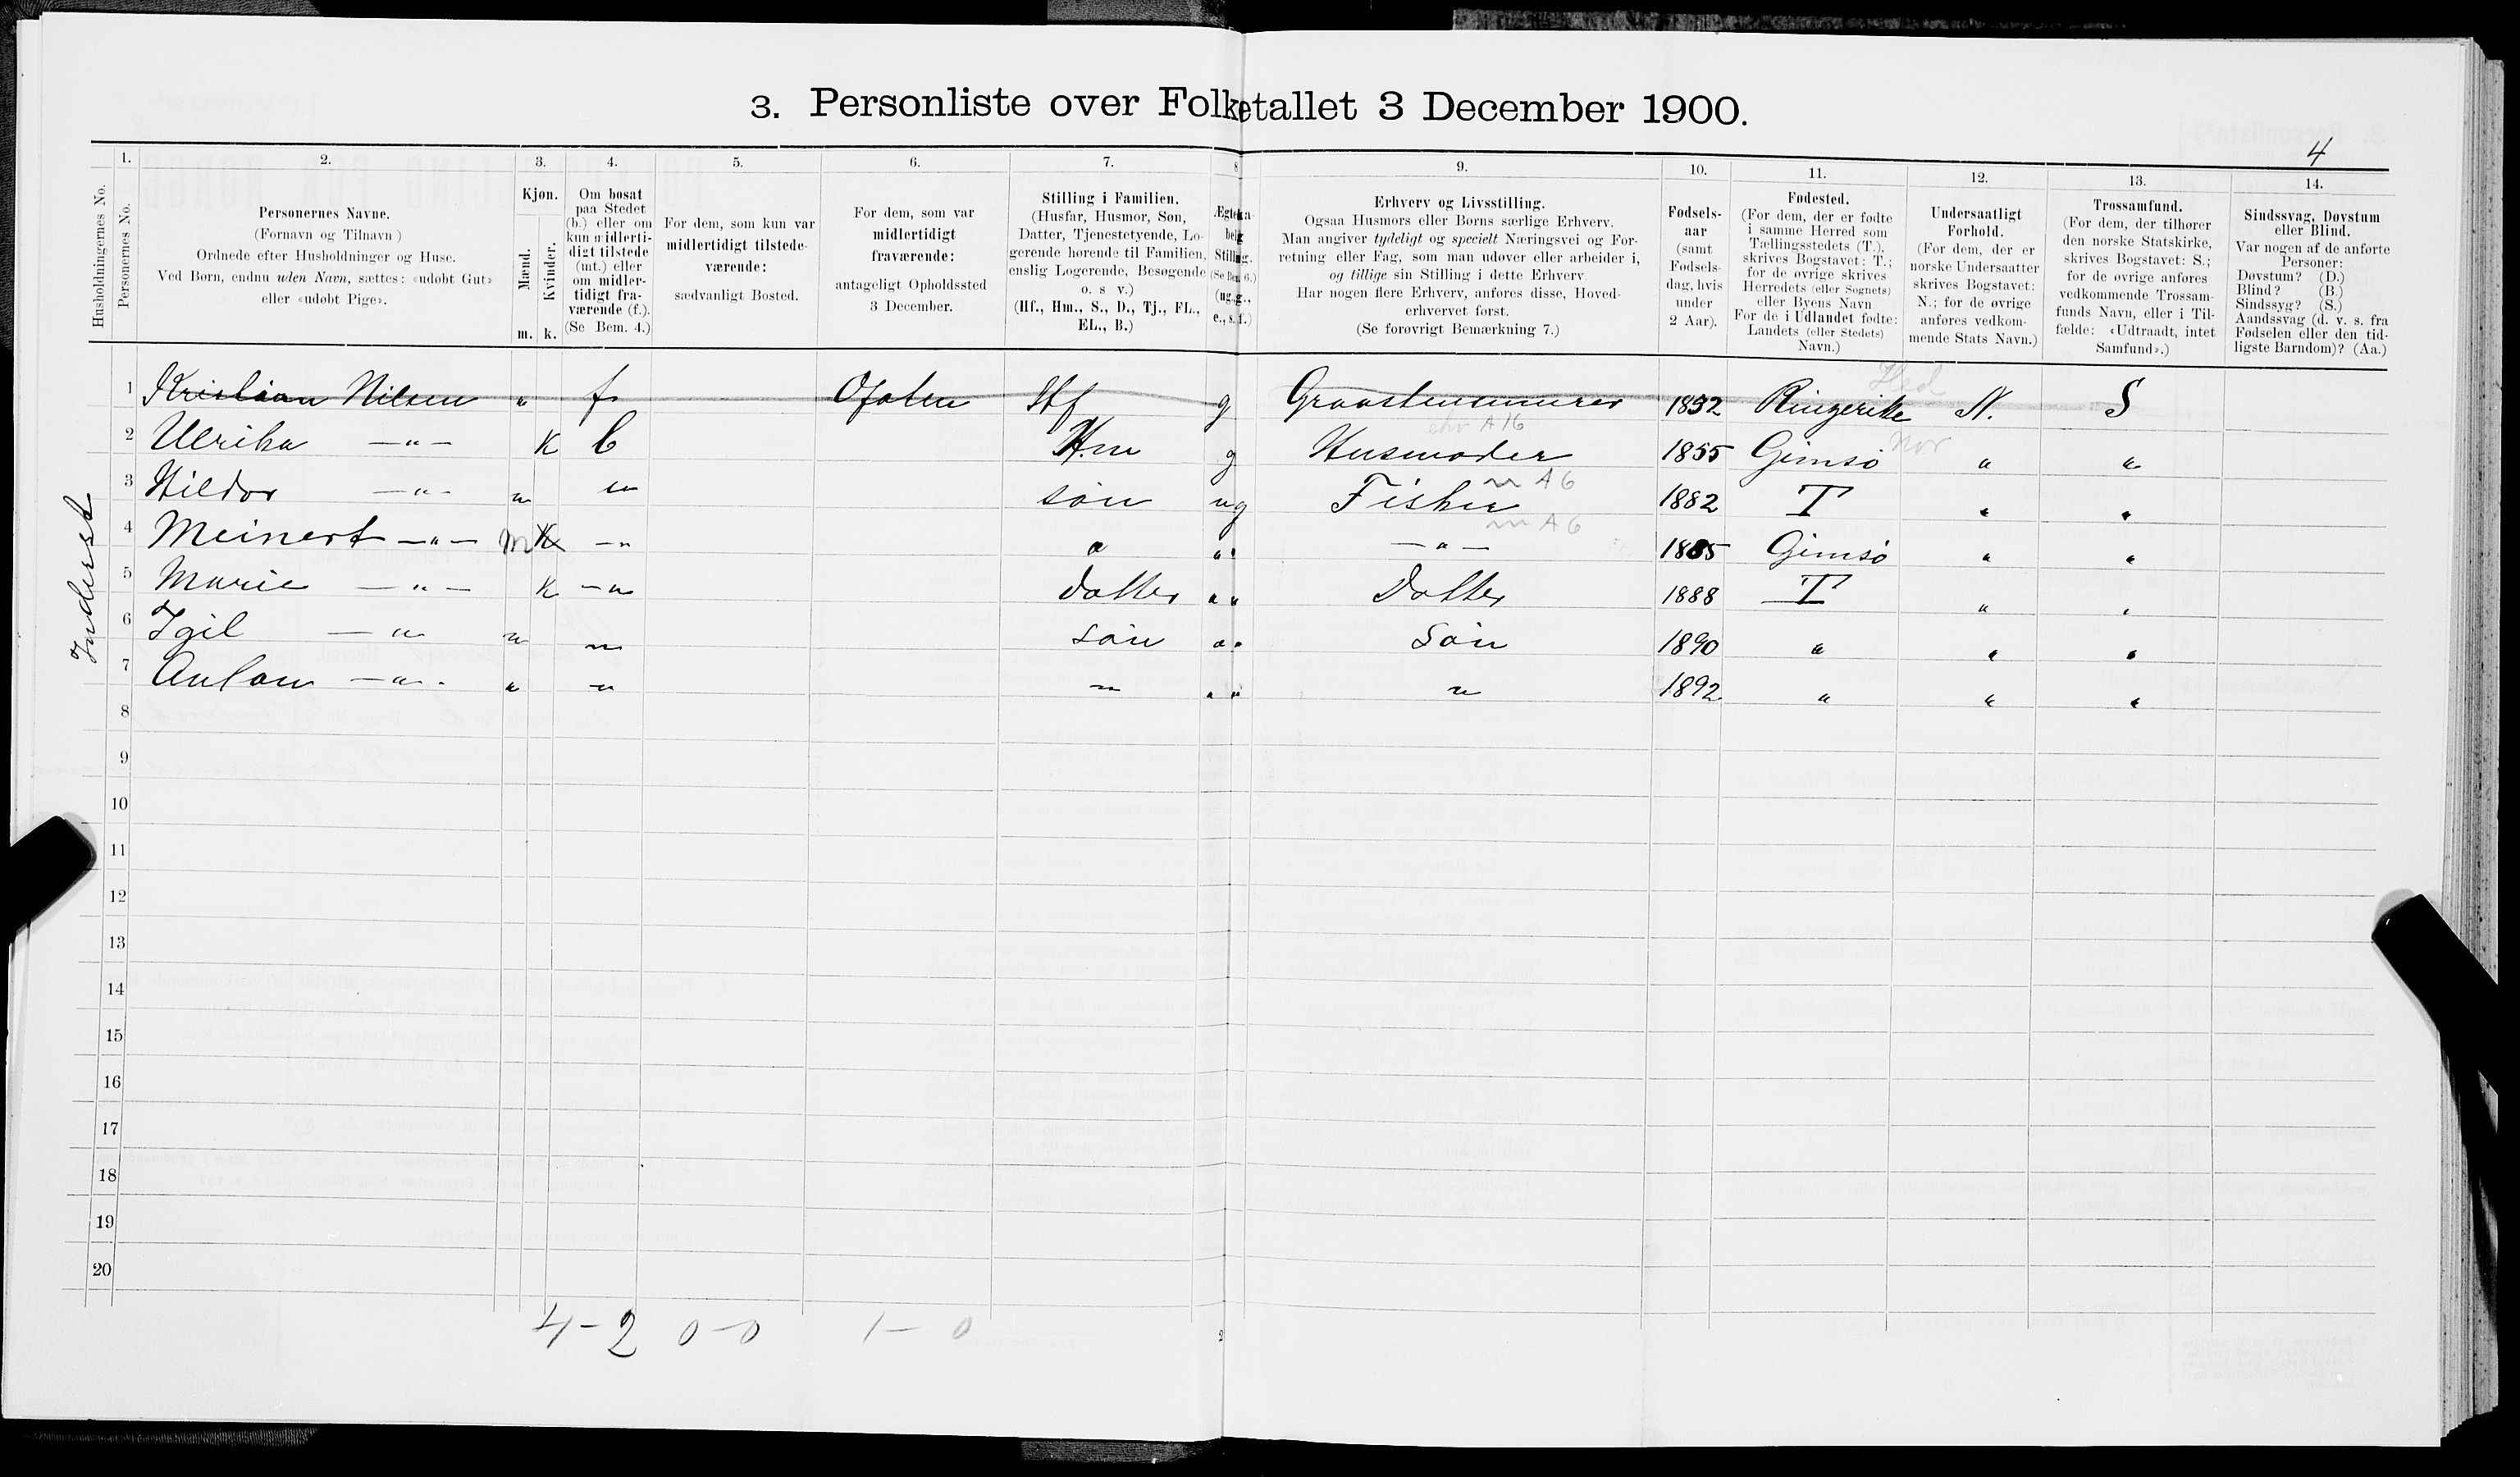 3. Personliste over Folketallet 3 December 1900.
4
Husholdningernes No.
1.
Personernes No.
2.
Personernes Navne.
(Fornavn og Tilnavn )
Ordnede efter Husholdninger og Huse.
Ved Børn, endnu uden Navn, sættes: «udøbt Gut»
eller «udøbt Pige».
3.
Kjøn.
Mænd.
Kvinder.
m. k.
4.
Om bosat
paa Stedet
(b.) eller om
kun midlerti-
digt tilstede
(mt.) eller
om midler-
tidigt fra-
værende (f.).
(Se Bem. 4.)
5.
For dem, som kun var
midlertidigt tilstede-
værende:
sædvanligt Bosted.
6.
For dem, som var
midlertidigt
fraværende:
antageligt Opholdssted
3 December.
7.
Stilling i Familien.
(Husfar, Husmor, Søn,
Datter, Tjenestetyende, Lo-
gerende hørende til Familien,
enslig Logerende, Besøgende
o. s v.)
(Hf., Hm., S., D., Tj., FL.,
EL., B.)
8
Ægteska-
belig
Stilling.
(Se Bem. 6.)
(ug., g.,
e., s., f.)
9.
Erhverv og Livsstilling.
Ogsaa Husmors eller Børns særlige Erhverv.
Man angiver tydeligt og specielt Næringsvei og For-
retning eller Fag, som man udøver eller arbeider i,
og tillige sin Stilling i dette Erhverv.
Har nogen flere Erhverv, anføres disse, Hoved-
erhvervet først.
(Se forøvrigt Bemærkning 7.)
10.
Fødsels-
aar
(samt
Fødsels-
dag, hvis
under
2 Aar).
11.
Fødested.
(For dem, der er fødte
i samme Herred som
Tællingsstedets (T.),
skrives Bogstavet: T.;
for de øvrige skrives
Herredets (eller Sognets)
eller Byens Navn
For de i Udlandet fødte:
Landets (eller Stedets)
Navn.)
12.
Undersaatligt
Forhold.
(For dem, der er
norske Undersaatter
skrives Bogstavet:
N.; for de øvrige
anføres vedkom-
mende Stats Navn.)
13.
Trossamfund.
(For dem, der tilhører
den norske Statskirke,
skrives Bogstavet: S.;
for de øvrige anføres
vedkommende Trossam-
funds Navn, eller i Til-
fælde: «Udtraadt, intet
Samfund».)
14.
Sindssvag, Døvstum
eller Blind.
Var nogen af de anførte
Personer:
Døvstum? (D.)
Blind? (B.)
Sindssyg? (S.)
Aandssvag (d. v. s. fra
Fødselen eller den tid-
ligste Barndom)? (Aa.)
Inderst
1 Kristian Nilsen " f. Ofoten Hf g Graastensmurer 1852 Ringerike N. S
2 Ulrika —"— K b Hm g Husmoder 1855 Gimsø " "
A 16
Nor
3 Hildor —"— " " søn ug Fisker 1882 T " "
A 6
4 Meinert —"— m K —" " " —"— 1885 Gimsø " "
A 6
5 Marie —"— K —" datter " " Datter 1888 T " "
6 Igil —" " " søn " " Søn 1890 " " "
7 Anton —"— " " " " " " 1892 " " "
8
9
10
11
12
13
14
15
16
17
18
19
20
4-2 0-0 1-0
2